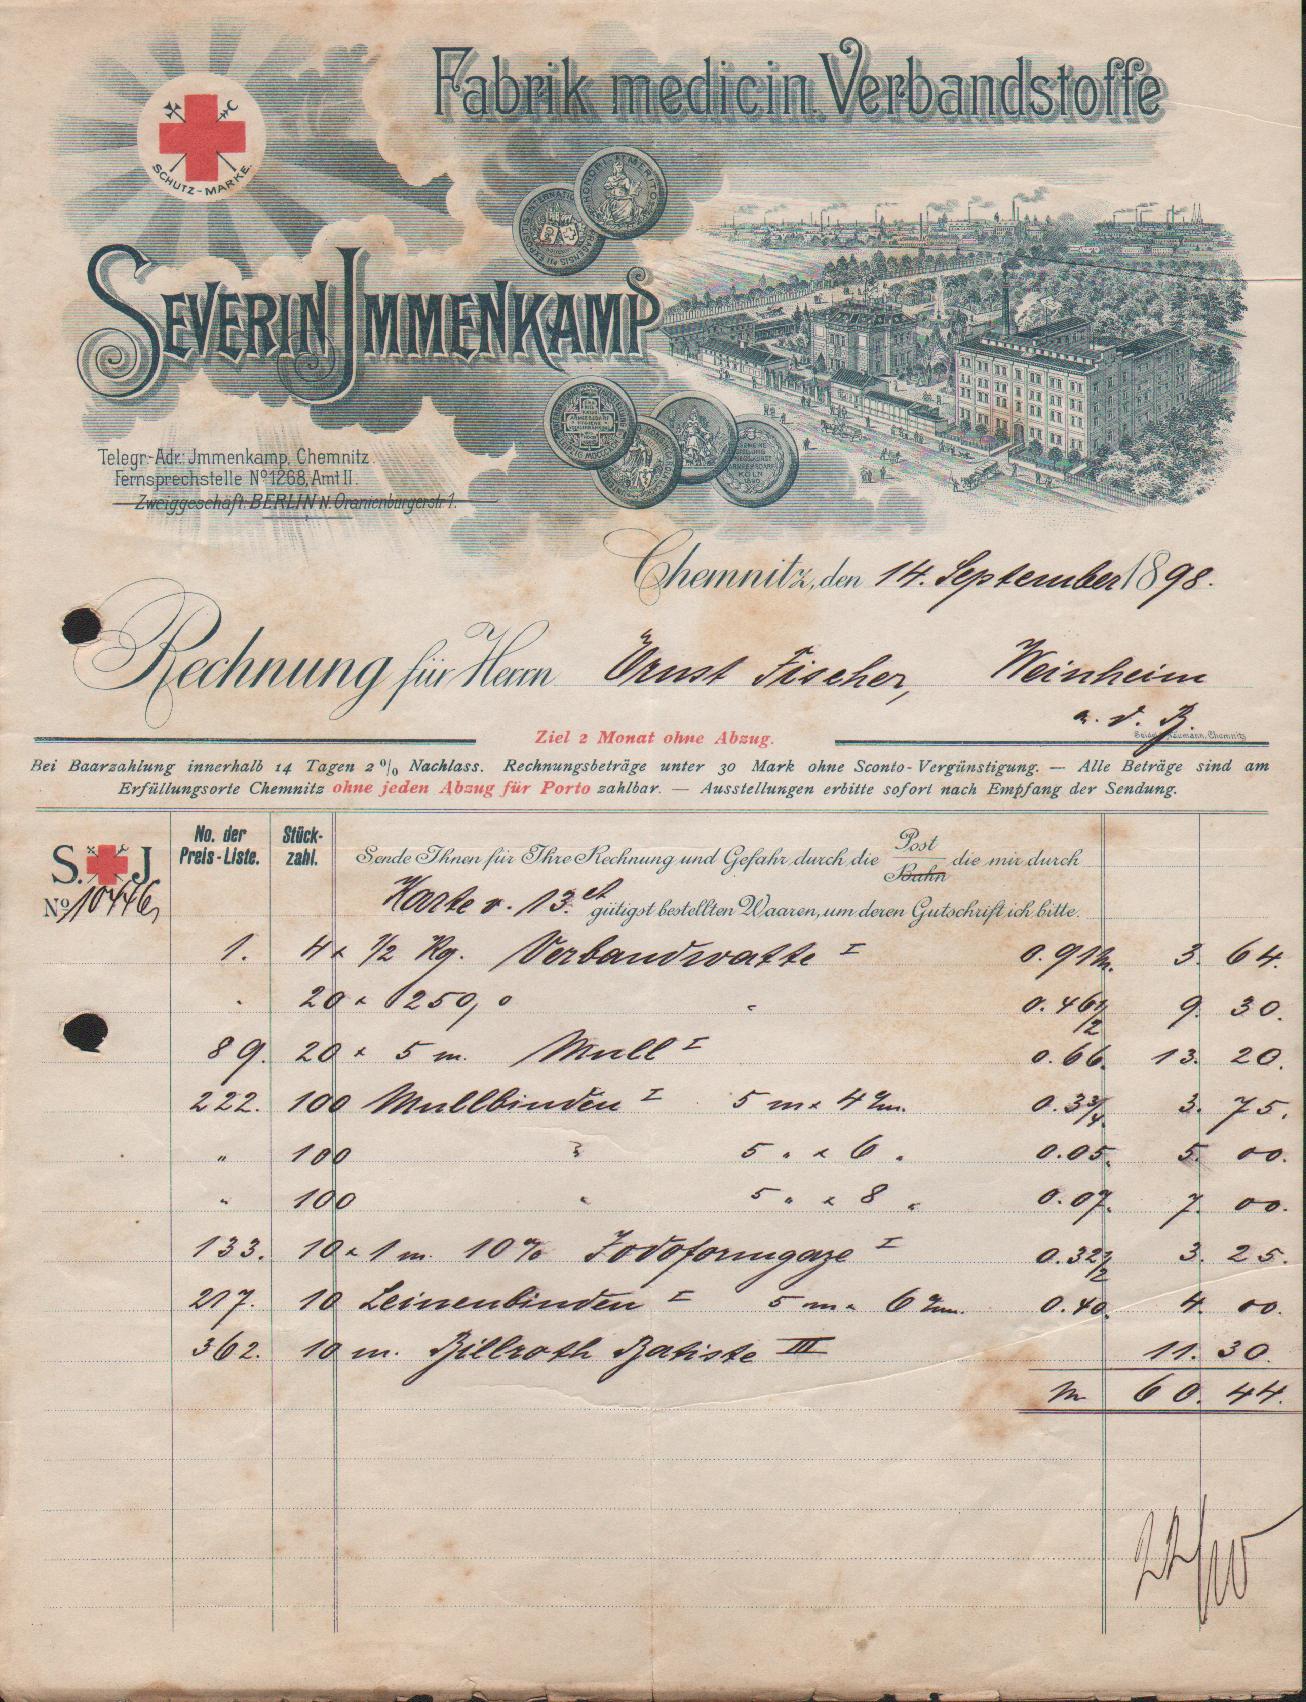 Fabrik medicin. Verbandstoffe
SCHUTZ-MARKE.
HONORI MERITO
SEVERIN JMMENKAMP
KÖLN
Telegr.-Adr.: Jmmenkamp, Chemnitz.
Fernsprechstelle No 1268, Amt II.
Zweiggeschäft: BERLIN N. Oranienburgerstr. 1.
Chemnitz, den 14. September 1898.
Rechnung für Herrn Ernst Fischer, Weinheim
a. d. B.
Ziel 2 Monat ohne Abzug.
Bei Baarzahlung innerhalb 14 Tagen 2% Nachlass. Rechnungsbeträge unter 30 Mark ohne Sconto-Vergünstigung. — Alle Beträge sind am
Erfüllungsorte Chemnitz ohne jeden Abzug für Porto zahlbar. — Ausstellungen erbitte sofort nach Empfang der Sendung.
S. J.
No. 10446
No. der Preis-Liste.
Stück-zahl.
Sende Ihnen für Ihre Rechnung und Gefahr durch die Post Bahn die mir durch
Karte v. 13. ct gütigst bestellten Waaren, um deren Gutschrift ich bitte.
1. 4 x 1/2 Kg. Verbandwatte I 0.91 M. 3. 64.
" 20 x 250, " " 0.46 1/2 9. 30.
89. 20 x 5 m. Mull I 0.66. 13. 20.
222. 100 Mullbinden I 5 m x 4 cm. 0.3 3/4. 3. 75.
" 100 " 5 " x 6 " 0.05. 5. 00.
" 100 " 5 " x 8 " 0.07. 7. 00.
133. 10 x 1 m. 10% Jodoformgaze I 0.32 1/2 3. 25.
217. 10 Leinenbinden I 5 m x 6 cm. 0.40. 4. 00.
362. 10 m. Billroth Batiste III 11. 30.
M 60. 44.